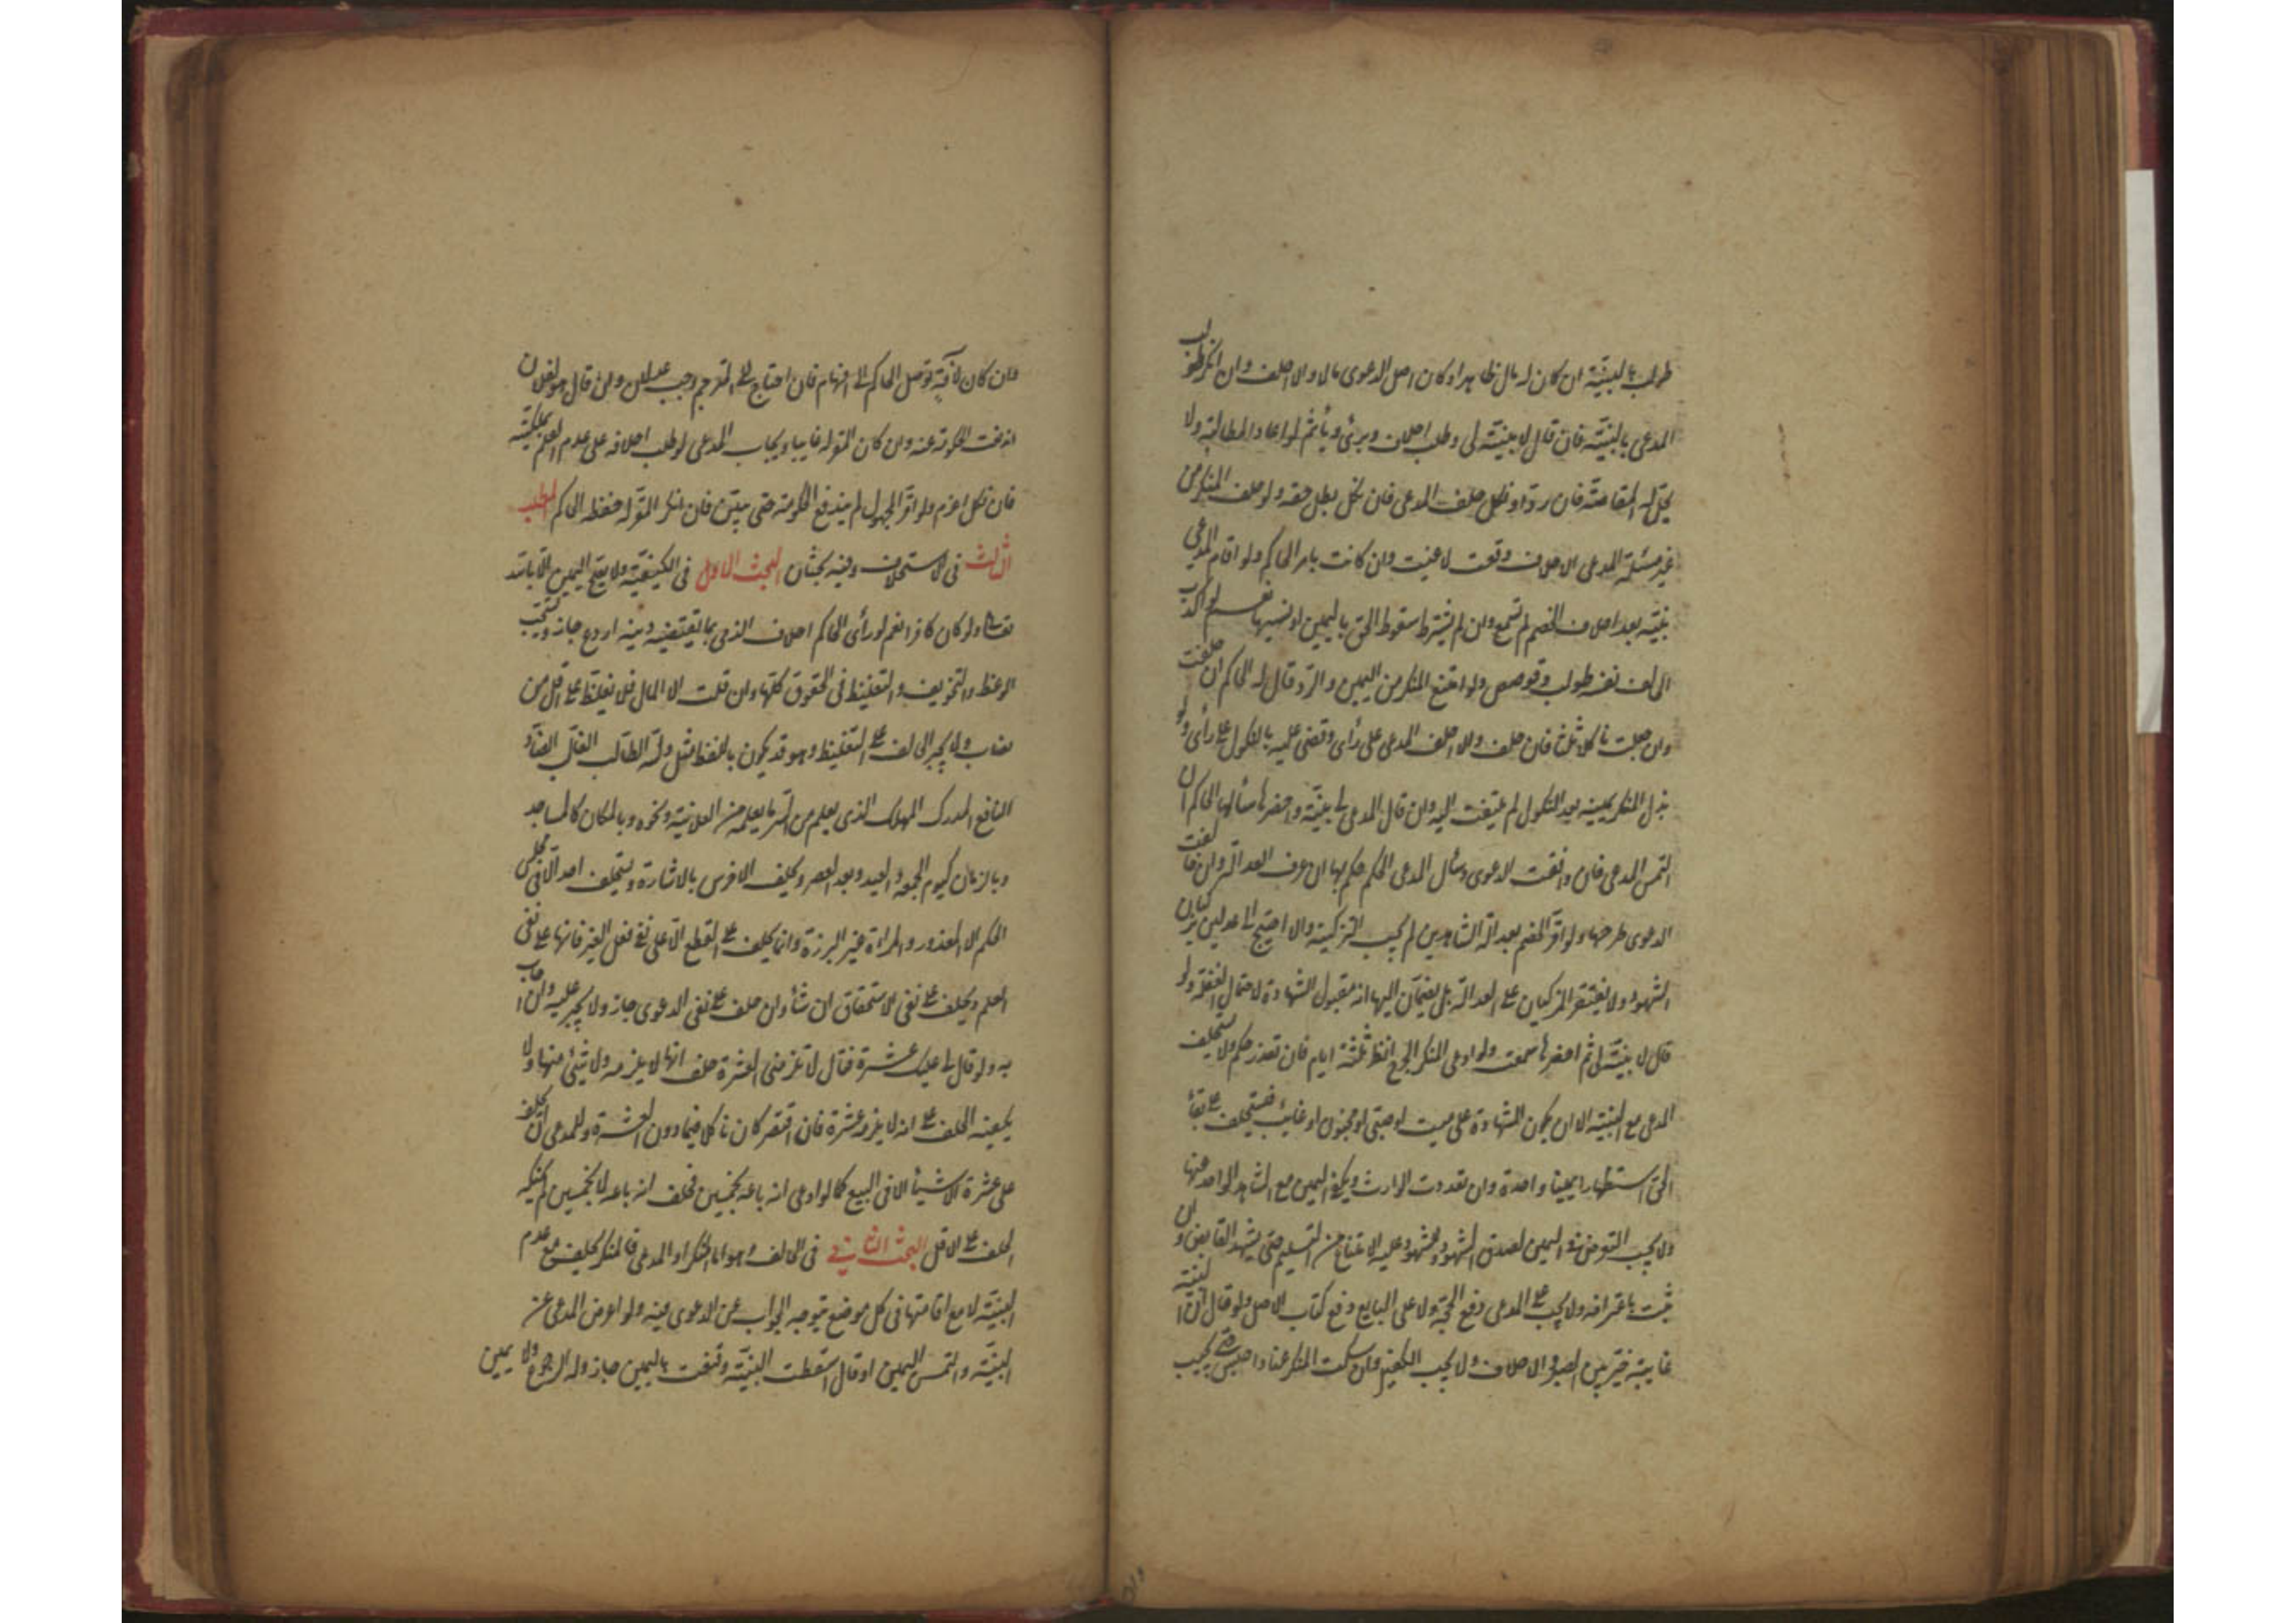 طولب بالبينة ان كان له مال ظاهرا و كان اصل الدعوى مالا والا احلف وان انكر طولب
المدعى بالبينة فان قال لا بينة لى وطلب احلافه وبرئ ويأثم لو اعاد المطالبة ولا
يحل له المقاصة فان رد او نكل حلف المدعى فان نكل بطل حقه ولو حلف المنكر من
غير مسئلة المدعى الاحلاف وقعت لاغية وان كانت بامر الحاكم ولو اقام المدعى
بينة بعد احلاف الخصم لم تسمع وان لم يشترط سقوط الحق باليمين او نسيها نعم لو اكذب
الحالف نفسه طولب وقوصص ولو امتنع المنكر من اليمين والرد قال له الحاكم ان حلفت
وان جعلت ناكلا ثلث فان حلف والا احلف المدعى على رأى وقضى عليه بالنكول على رأى ولو
بذل المنكر يمينه بعد النكول لم يلتفت اليه وان قال المدعى لى بينة واحضرها سألها الحاكم ان
التمس المدعى فان وافقت الدعوى وسأل المدعى الحكم حكم بها ان عرف العدالة وان خالفت
الدعوى طرحها ولو اقر الخصم بعدالة الشاهدين لم يجب التزكية والا احتيج الى عدلين يزكيان
الشهود ولا يقتصر المزكيان على العدالة بل يضمان اليها انه مقبول الشهادة لاحتمال الغفلة ولو
قال لا بينة لى ثم احضرها سمعت ولو ادعى المنكر الجرح انظر ثلثة ايام فان تعذر حكم ولا يستحلف
المدعى مع البينة الا ان يكون الشهادة على ميت او صبى او مجنون او غايب فيستحلف على بقاء
الحق استظهارا يمينا واحدة وان تعددت الوارث ويكفى اليمين مع الشاهد الواحد عنها
ولا يجب التعرض فى اليمين لصدق الشهود وللمشهود عليه الامتناع من التسليم حتى يشهد القابض وان
ثبت باعترافه ولا يجب على المدعى دفع الحجة ولا على البايع دفع كتاب الاصل ولو قال ان البينة
غايبة خير بين الصبر والاحلاف ولا يجب الكفيل وان سكت المنكر عنادا حبس حتى يجيب
وان كان لآفة توصل الحاكم الى افهامه فان احتاج الى المترجم وجب عدلان وان قال هو لفلان
اندفعت الحكومة عنه وان كان المقر له غايبا ويجاب المدعى لو طلب احلافه على عدم العلم بملكيته
فان نكل اغرم ولو اقر لمجهول لم يندفع الحكومة حتى يبين فان انكر المقر له حفظه الحاكم المطلب
الثالث فى الاستحلاف وفيه بحثان البحث الاول فى الكيفية ولا يصح اليمين الا بالله
تعالى ولو كان كافرا نعم لو رأى الحاكم احلاف الذمى بما يقتضيه دينه اردع جاز ويستحب
الوعظ والتخويف والتغليظ فى الحقوق كلها وان قلت الا المال فلا يغلظ على اقل من
نصاب ولا يجبر الحالف على التغليظ وهو قد يكون باللفظ مثل والله الطالب الغالب الضار
النافع المدرك المهلك الذى يعلم من السر ما يعلمه من العلانية ونحوه وبالمكان كالمساجد
وبالزمان كيوم الجمعة والعيد وبعد العصر ويحلف الاخرس بالاشارة ولا يستحلف احد الا فى مجلس
الحكم الا المعذور والمراة غير البرزة وانما يحلف على القطع الا على نفى فعل الغير فانها على نفى
العلم ويحلف على نفى الاستحقاق ان شاء وان حلف على نفى الدعوى جاز ولا يجبر عليه وان اجاب
به ولو قال لى عليك عشرة فقال لا تلزمنى العشرة حلف انها لا يلزمه ولا شئ منها ولا
يكفيه الحلف على انه لا يلزمه عشرة فان اقتصر كان ناكلا فيما دون العشرة وللمدعى ان يحلف
على عشرة الا شيئا الا فى البيع كما لو ادعى انه باعه بخمسين فحلف انه باعه لا بخمسين لم يمكنه
الحلف على الاقل البحث الثانى فى الحالف وهو اما المنكر او المدعى فالمنكر يحلف مع عدم
البينة لا مع اقامتها فى كل موضع يتوجه الجواب عن الدعوى فيه ولو اعرض المدعى عن
البينة والتمس اليمين او قال اسقطت البينة وقنعت باليمين جاز وله الرجوع ولا يمين